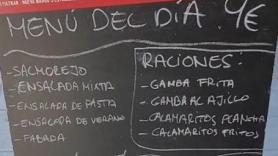 MENÚ DEL DÍA 9€
- SALMOREJO
- ENSALADA MIXTA
- ENSALADA DE PASTA
- ENSALADA DE VERANO
- FABADA
RACIONES:
- GAMBA FRITA
- GAMBA AL AJILLO
- CALAMARITOS PLANCHA
- CALAMARITOS FRITOS